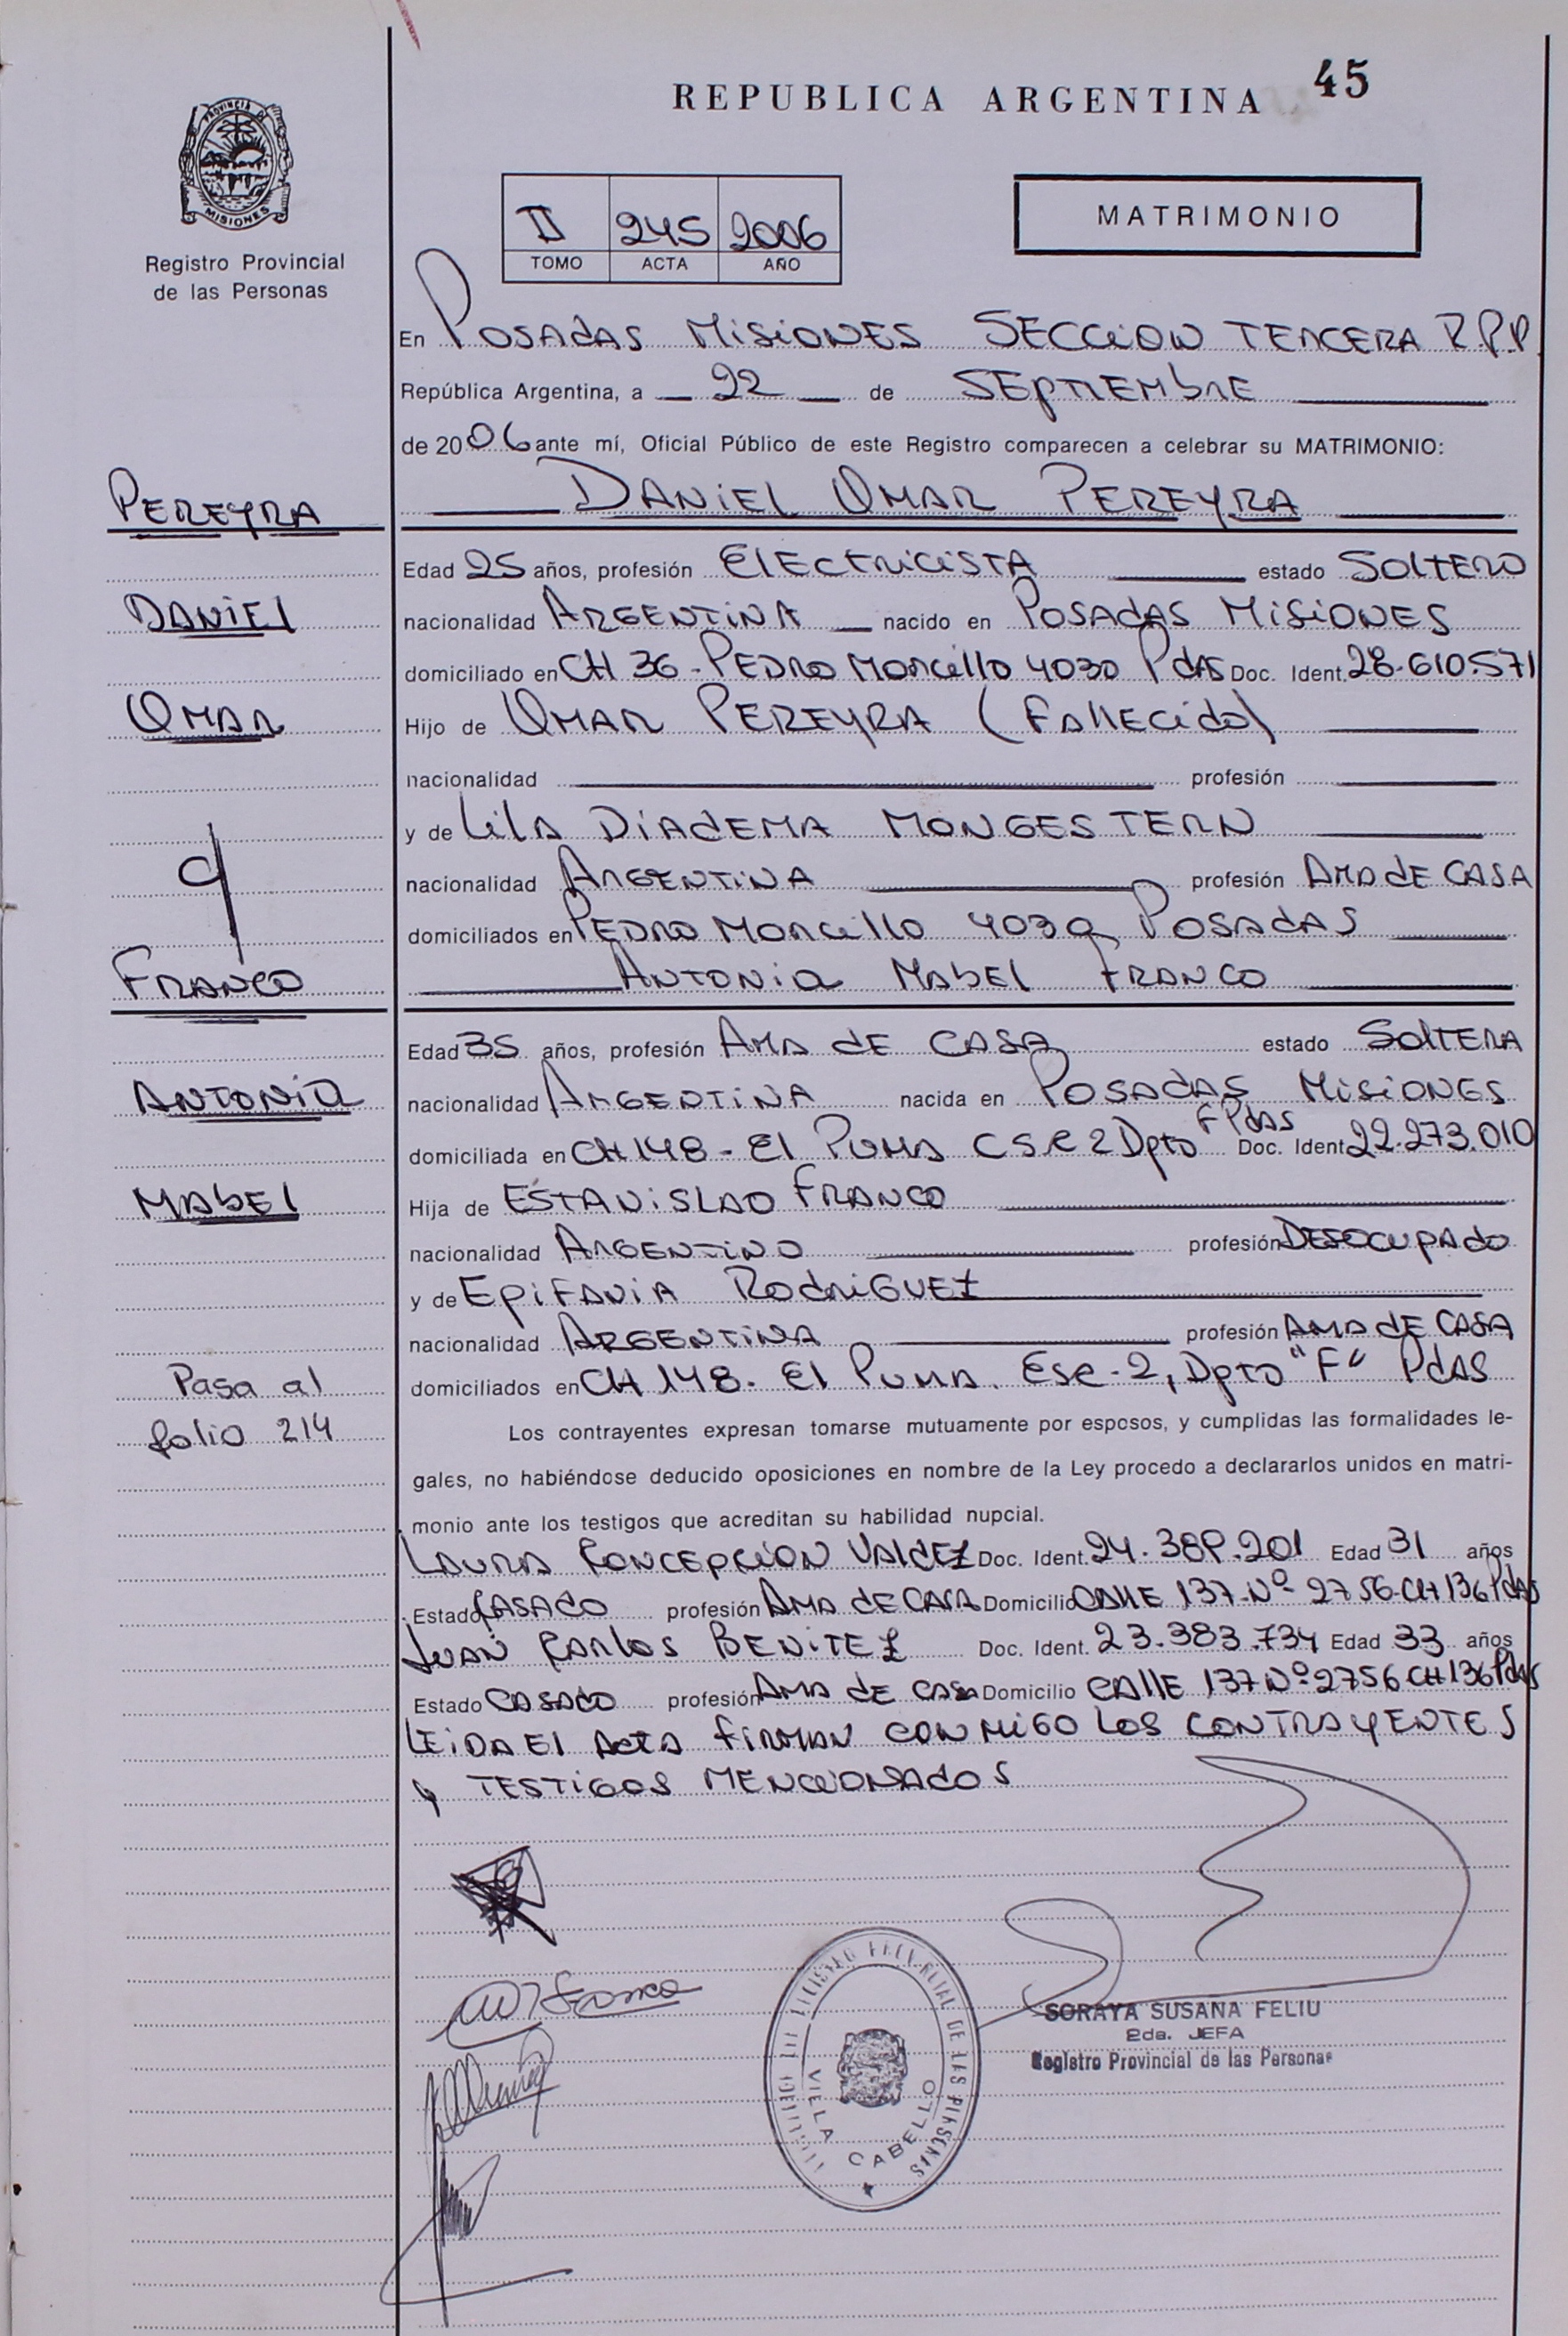 45
REPUBLICA ARGENTINA
PROVINCIA DE
MISIONES
Registro Provincial
de las Personas
II 245 2006
TOMO ACTA AÑO
MATRIMONIO
En POSADAS MISIONES SECCION TERCERA R.P.P.
República Argentina, a 22 de SEPTIEMBRE
de 2006 ante mí, Oficial Público de este Registro comparecen a celebrar su MATRIMONIO:
PEREYRA
DANIEL OMAR PEREYRA
Edad 25 años, profesión ElECTRICISTA estado SOLTERO
DANIEL
nacionalidad ARGENTINA nacido en POSADAS MISIONES
domiciliado en CH 36 - PEDRO Morcillo 4030 PdAS Doc. Ident. 28.610.571
OMAR
Hijo de OMAR PEREYRA (FAllECIdo)
nacionalidad profesión
y de LilA DIAdEMA MONGESTERN
nacionalidad ARGENTINA profesión AMA dE CASA
domiciliados en PEDRO Morcillo 4030 POSAdAS
y
FRANCO
ANTONIA MAbEl FRANCO
Edad 35 años, profesión AMA dE CASA estado SOlTERA
ANTONIA
nacionalidad ARGENTINA nacida en POSADAS MISIONES
domiciliada en CH 148 - El PUMA ESC 2 Dpto F PdAS Doc. Ident. 22.273.010
MAbEl
Hija de ESTANISLAO FRANCO
nacionalidad ARGENTINO profesión DESOCUPAdo
y de EpiFANIA RodRIGUEZ
nacionalidad ARGENTINA profesión AMA dE CASA
Pasa al
domiciliados en CH 148. El PUMA. Esc-2, Dpto "F" PdAS
folio 214
Los contrayentes expresan tomarse mutuamente por esposos, y cumplidas las formalidades le-
gales, no habiéndose deducido oposiciones en nombre de la Ley procedo a declararlos unidos en matri-
monio ante los testigos que acreditan su habilidad nupcial.
LAURA CONCEPCION VALdEZ Doc. Ident. Edad 31 años
Estado CASAdo profesión AMA dE CASA Domicilio CAllE 137 Nº 2756 CH 136 PdAS
JUAN CARLOS BENITEZ Doc. Ident. 23.383.734 Edad 33 años
Estado CASAdo profesión AMA dE CASA Domicilio CAllE 137 Nº 2756 CH 136 PdAS
LEIDA El ACTA FIRMAN CONMIGO LOS CONTRAYENTES
y TESTIGOS MENCIONADOS
Franco
REGISTRO PROVINCIAL DE LAS PERSONAS
VILLA CABELLO
SORAYA SUSANA FELIU
2da. JEFA
Registro Provincial de las Personas